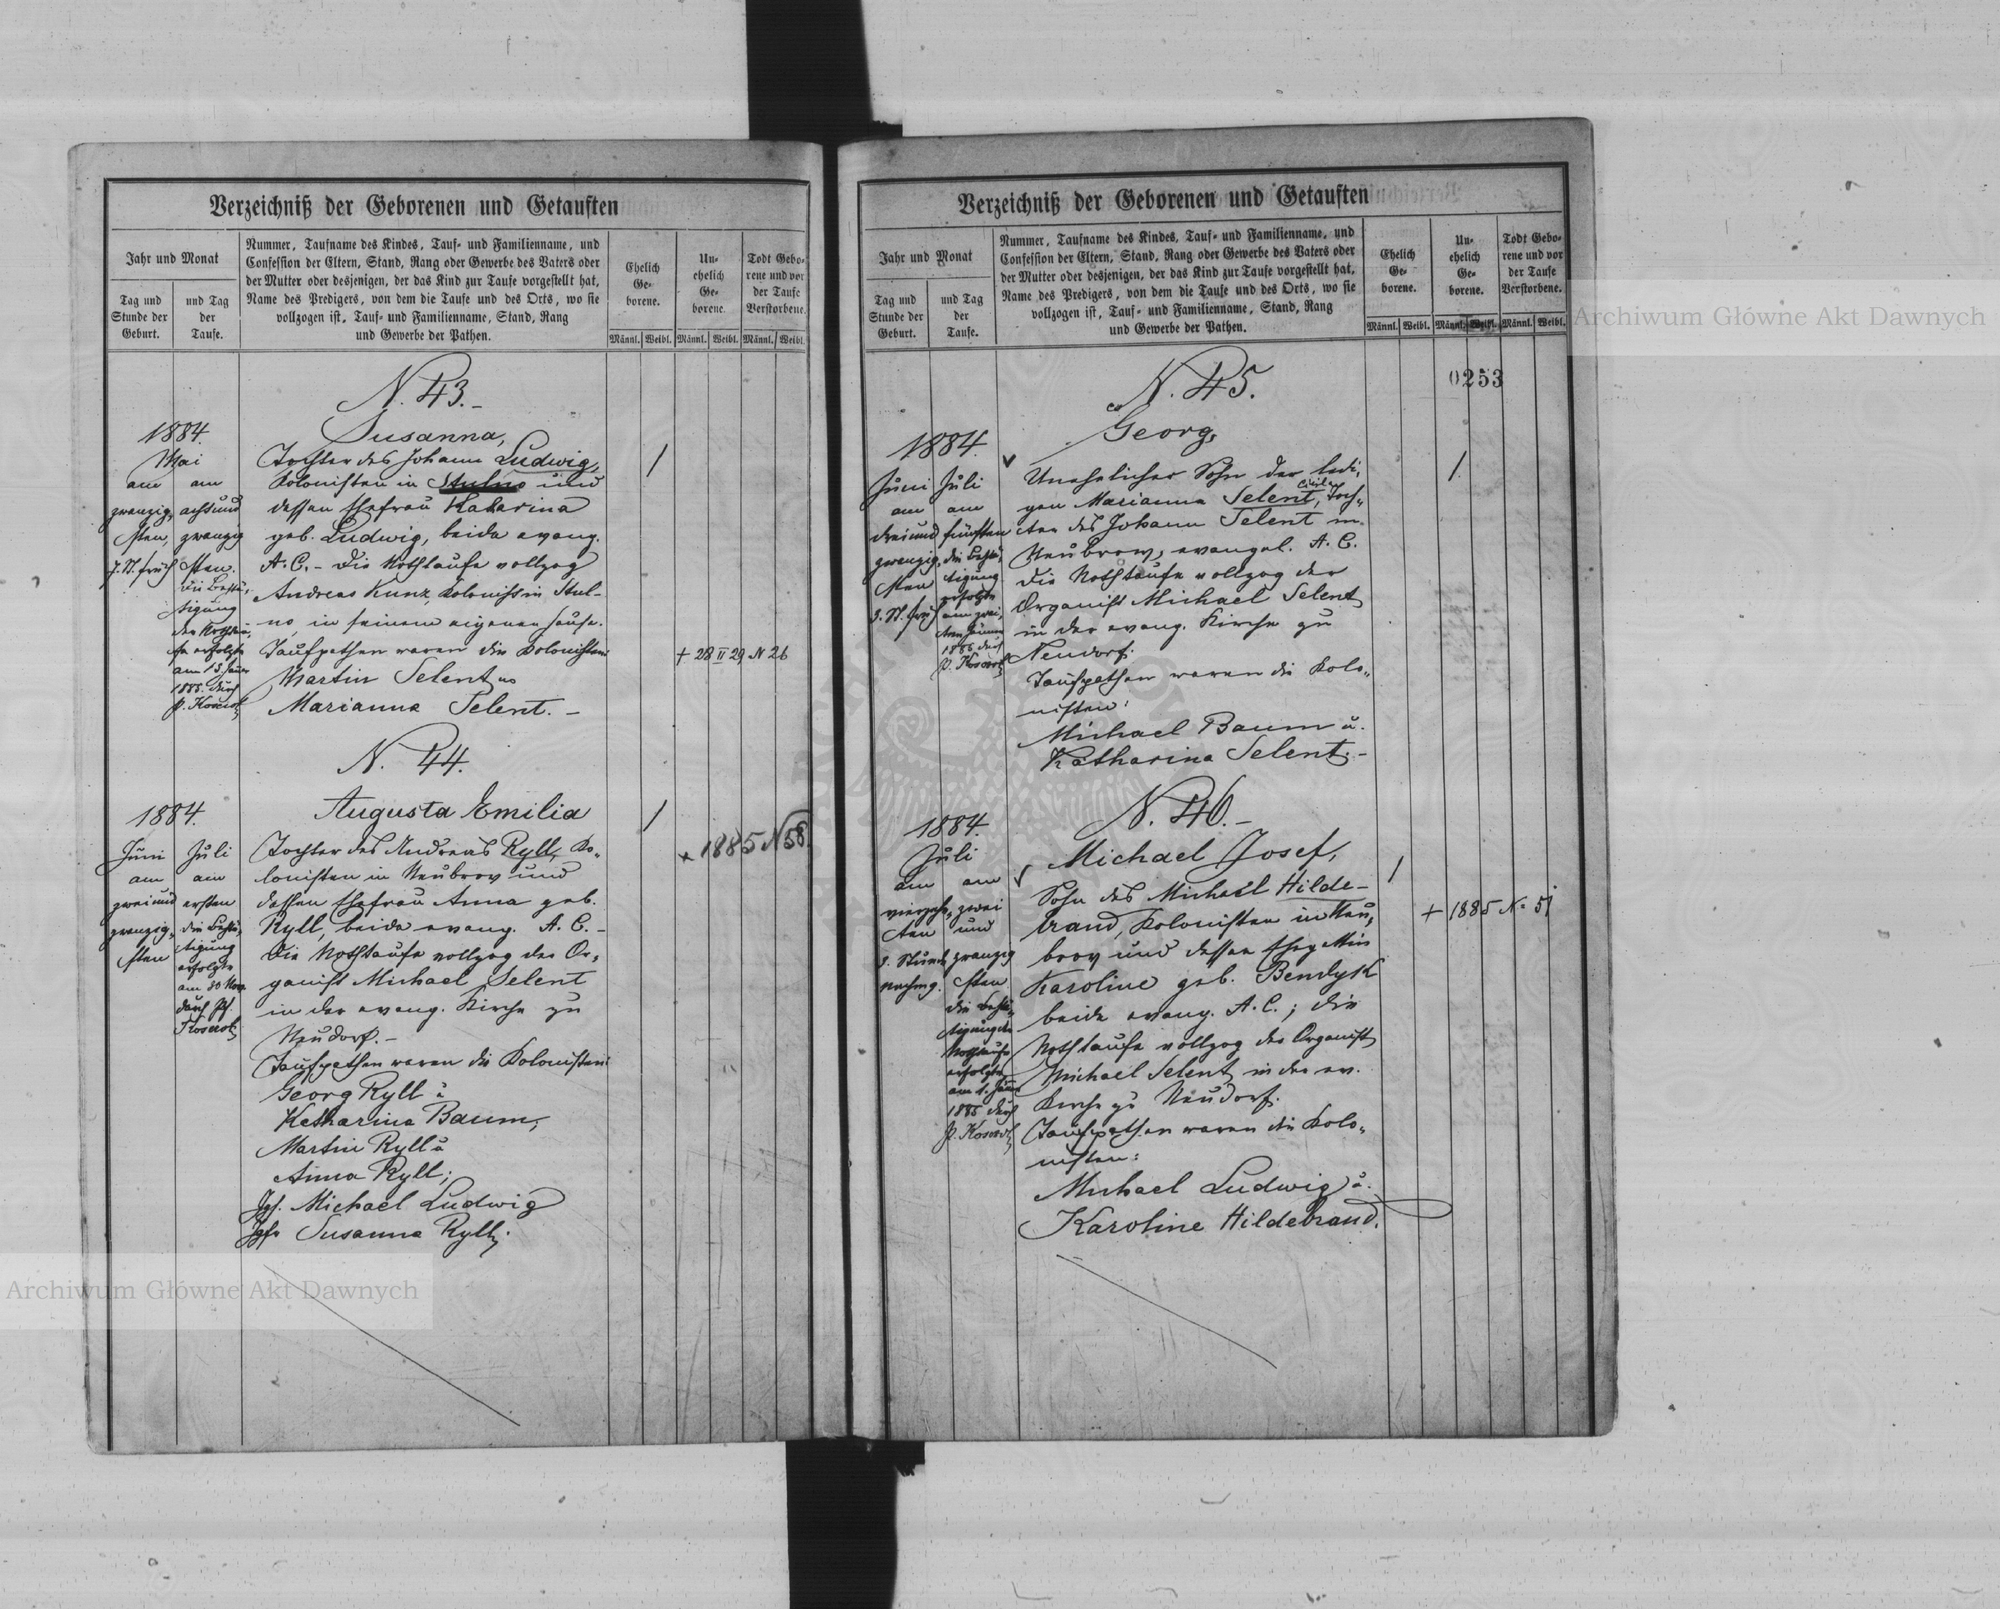 Verzeichniß der Geborenen und Getauften
Jahr und Monat
Tag und
Stunde der
Geburt.
und Tag
der
Taufe.
Nummer, Taufname des Kindes, Tauf- und Familienname, und
Confession der Eltern, Stand, Rang oder Gewerbe des Vaters oder
der Mutter oder desjenigen, der das Kind zur Taufe vorgestellt hat,
Name des Predigers, von dem die Taufe und des Orts, wo sie
vollzogen ist, Tauf- und Familienname, Stand, Rang
und Gewerbe der Pathen.
Ehelich
Ge-
borene.
Un-
ehelich
Ge-
borene
Todt Gebo-
rene und vor
der Taufe
Verstorbene.
Männl. Weibl. Männl. Weibl. Männl. Weibl.
N. 43.-
1884.
Mai
am
zwanzig-
sten,
7. U. früh
am
achtund
zwanzig
sten.
die Bestä-
tigung
der Nothtau-
fe erfolgte
am 13 Januar
1885. durch
P.
Susanna,
Tochter des Johann Ludwig,
Kolonisten in Stulno und
dessen Ehefrau Katarina
geb. Ludwig, beide evang.
A. C. - Die Nothtaufe vollzog
Andreas Kunz, Kolonist in Stul-
no, in seinem eigenen Hause.
Taufpathen waren die Kolonisten:
Martin Selent u
Marianna Selent. -
/
+ 28 II 29 N 26
N. 44.
1884.
Juni
am
zweiund
zwanzig-
sten
Juli
am
ersten
die Bestä-
tigung
erfolgte
am 30 Nov.
durch Pf.
Augusta Emilia
Tochter des Andreas Ryll, Ko-
lonisten in Neubrow und
dessen Ehefrau Anna geb.
Ryll, beide evang. A. C. -
Die Nothtaufe vollzog der Or-
ganist Michael Selent
in der evang. Kirche zu
Neudorf. -
Taufpathen waren die Kolonisten:
Georg Ryll u
Katharina Baum,
Martin Ryll u
Anna Ryll;
Jgf. Michael Ludwig
Jgfr Susanna Ryll.
/
+ 1885 N 58.
Verzeichniß der Geborenen und Getauften
Jahr und Monat
Tag und
Stunde der
Geburt.
und Tag
der
Taufe.
Nummer, Taufname des Kindes, Tauf- und Familienname, und
Confession der Eltern, Stand, Rang oder Gewerbe des Vaters oder
der Mutter oder desjenigen, der das Kind zur Taufe vorgestellt hat,
Name des Predigers, von dem die Taufe und des Orts, wo sie
vollzogen ist, Tauf- und Familienname, Stand, Rang
und Gewerbe der Pathen.
Ehelich
Ge-
borene.
Un-
ehelich
Ge-
borene.
Todt Gebo-
rene und vor
der Taufe
Verstorbene.
Männl. Weibl. Männl. Weibl. Männl. Weibl.
0253
N. 45.
1884.
Juni
am
dreiund
zwanzig-
sten
3. U. früh
Juli
am
fünften
die Bestä-
tigung
erfolgte
am zwei-
ten Januar
1885 durch
P.
Georg,
Unehelicher Sohn der ledi-
gen Marianna Selent, Toch-
ter des Johann Selent in
Neubrow, evangel. A. C.
Die Nothtaufe vollzog der
Organist Michael Selent
in der evang. Kirche zu
Neudorf.
Taufpathen waren die Kolo-
nisten:
Michael Baum u.
Katharina Selent. -
/
N. 46. -
1884.
Juli
am
vierzehn-
ten
3. Stunde
nachmg.
am
zwei
und
zwanzig
sten
die Bestä-
tigung der
Nothtaufe
erfolgte
am 1. Januar
1885 durch
P.
Michael Josef,
Sohn des Michael Hilde-
brand, Kolonisten in Neu-
brow und dessen Ehegattin
Karoline geb. Bendyk
beide evang. A. C.; die
Nothtaufe vollzog der Organist
Michael Selent in der ev.
Kirche zu Neudorf.
Taufpathen waren die Kolo-
nisten:
Michael Ludwig u.
Karoline Hildebrand.
/
+ 1885 N. 51
Archiwum Główne Akt Dawnych
Archiwum Główne Akt Dawnych